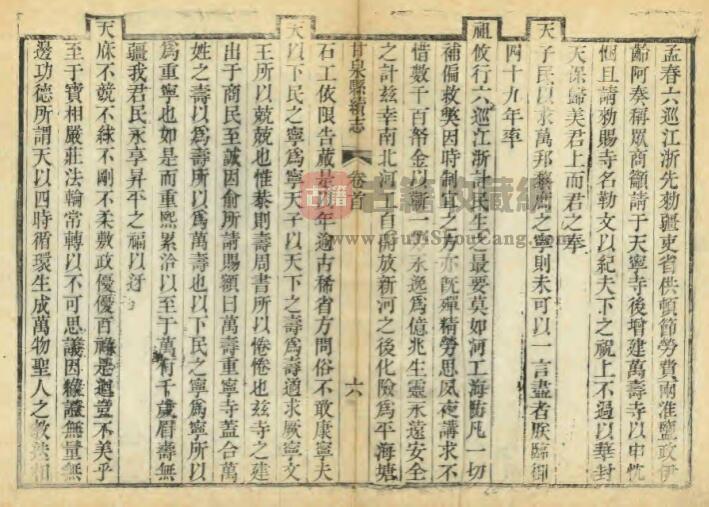 孟春六巡江浙先勅疆吏東省供頓節勞費兩淮鹽政伊
齡阿奏稱眾商籲請于天寧寺後增建萬壽寺以申忱
悃且請勅賜寺名勒文以紀夫下之祝上不過以華封
天保歸美君上而君之奉
天子民以求萬邦黎庶之寧則未可以一言盡者朕臨御
四十九年率
祖攸行六巡江浙計民生之最要莫如河工海防凡一切
補偏救獘因時制宜之方亦旣殫精勞思夙夜講求不
惜數千百帑金以築一勞永逸爲億兆生靈永遠安全
之計茲幸南北河工自開放新河之後化險爲平海塘
甘泉縣續志
卷首
六
石工依限告蕆是今年逾古稀省方問俗不敢康寧夫
天以下民之寧爲寧天子以天下之壽爲壽遹求厥寧文
王所以兢兢也惟泰則壽周書所以惓惓也茲寺之建
出于商民至誠因俞所請賜額曰萬壽重寧寺蓋合萬
姓之壽以爲壽所以爲萬壽也以下民之寧爲寧所以
爲重寧也如是而重熙累洽以至于萬有千歲眉壽無
疆我君民永享昇平之福以迓
天庥不競不絿不剛不柔敷政優優百祿是遒豈不美乎
至于寶相嚴莊法輪常轉以不可思議因緣證無量無
邊功德所謂天以四時循環生成萬物聖人之教
古籍收藏網
www.GuJiShouCang.com